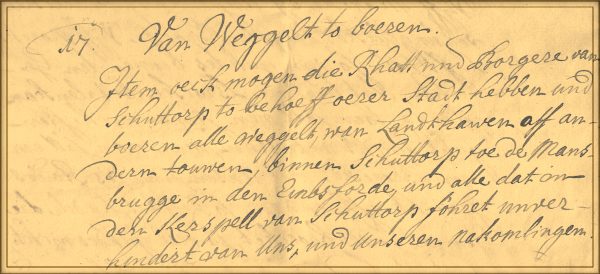 17. Van Weggelt to boeren.
Jtem oeck mogen die Rhatt und Borgere van
Schuttorp to behoeff oerer Stadt hebben und
boeren alle weggelt, van Landthawen off an-
derm touwen, binnen Schuttorp toe de Mans-
brugge in den Embsforde, und alle dat in
dem Kerspell van Schuttorp föhret unver-
hindert van Uns, und Unseren nakomlingen.